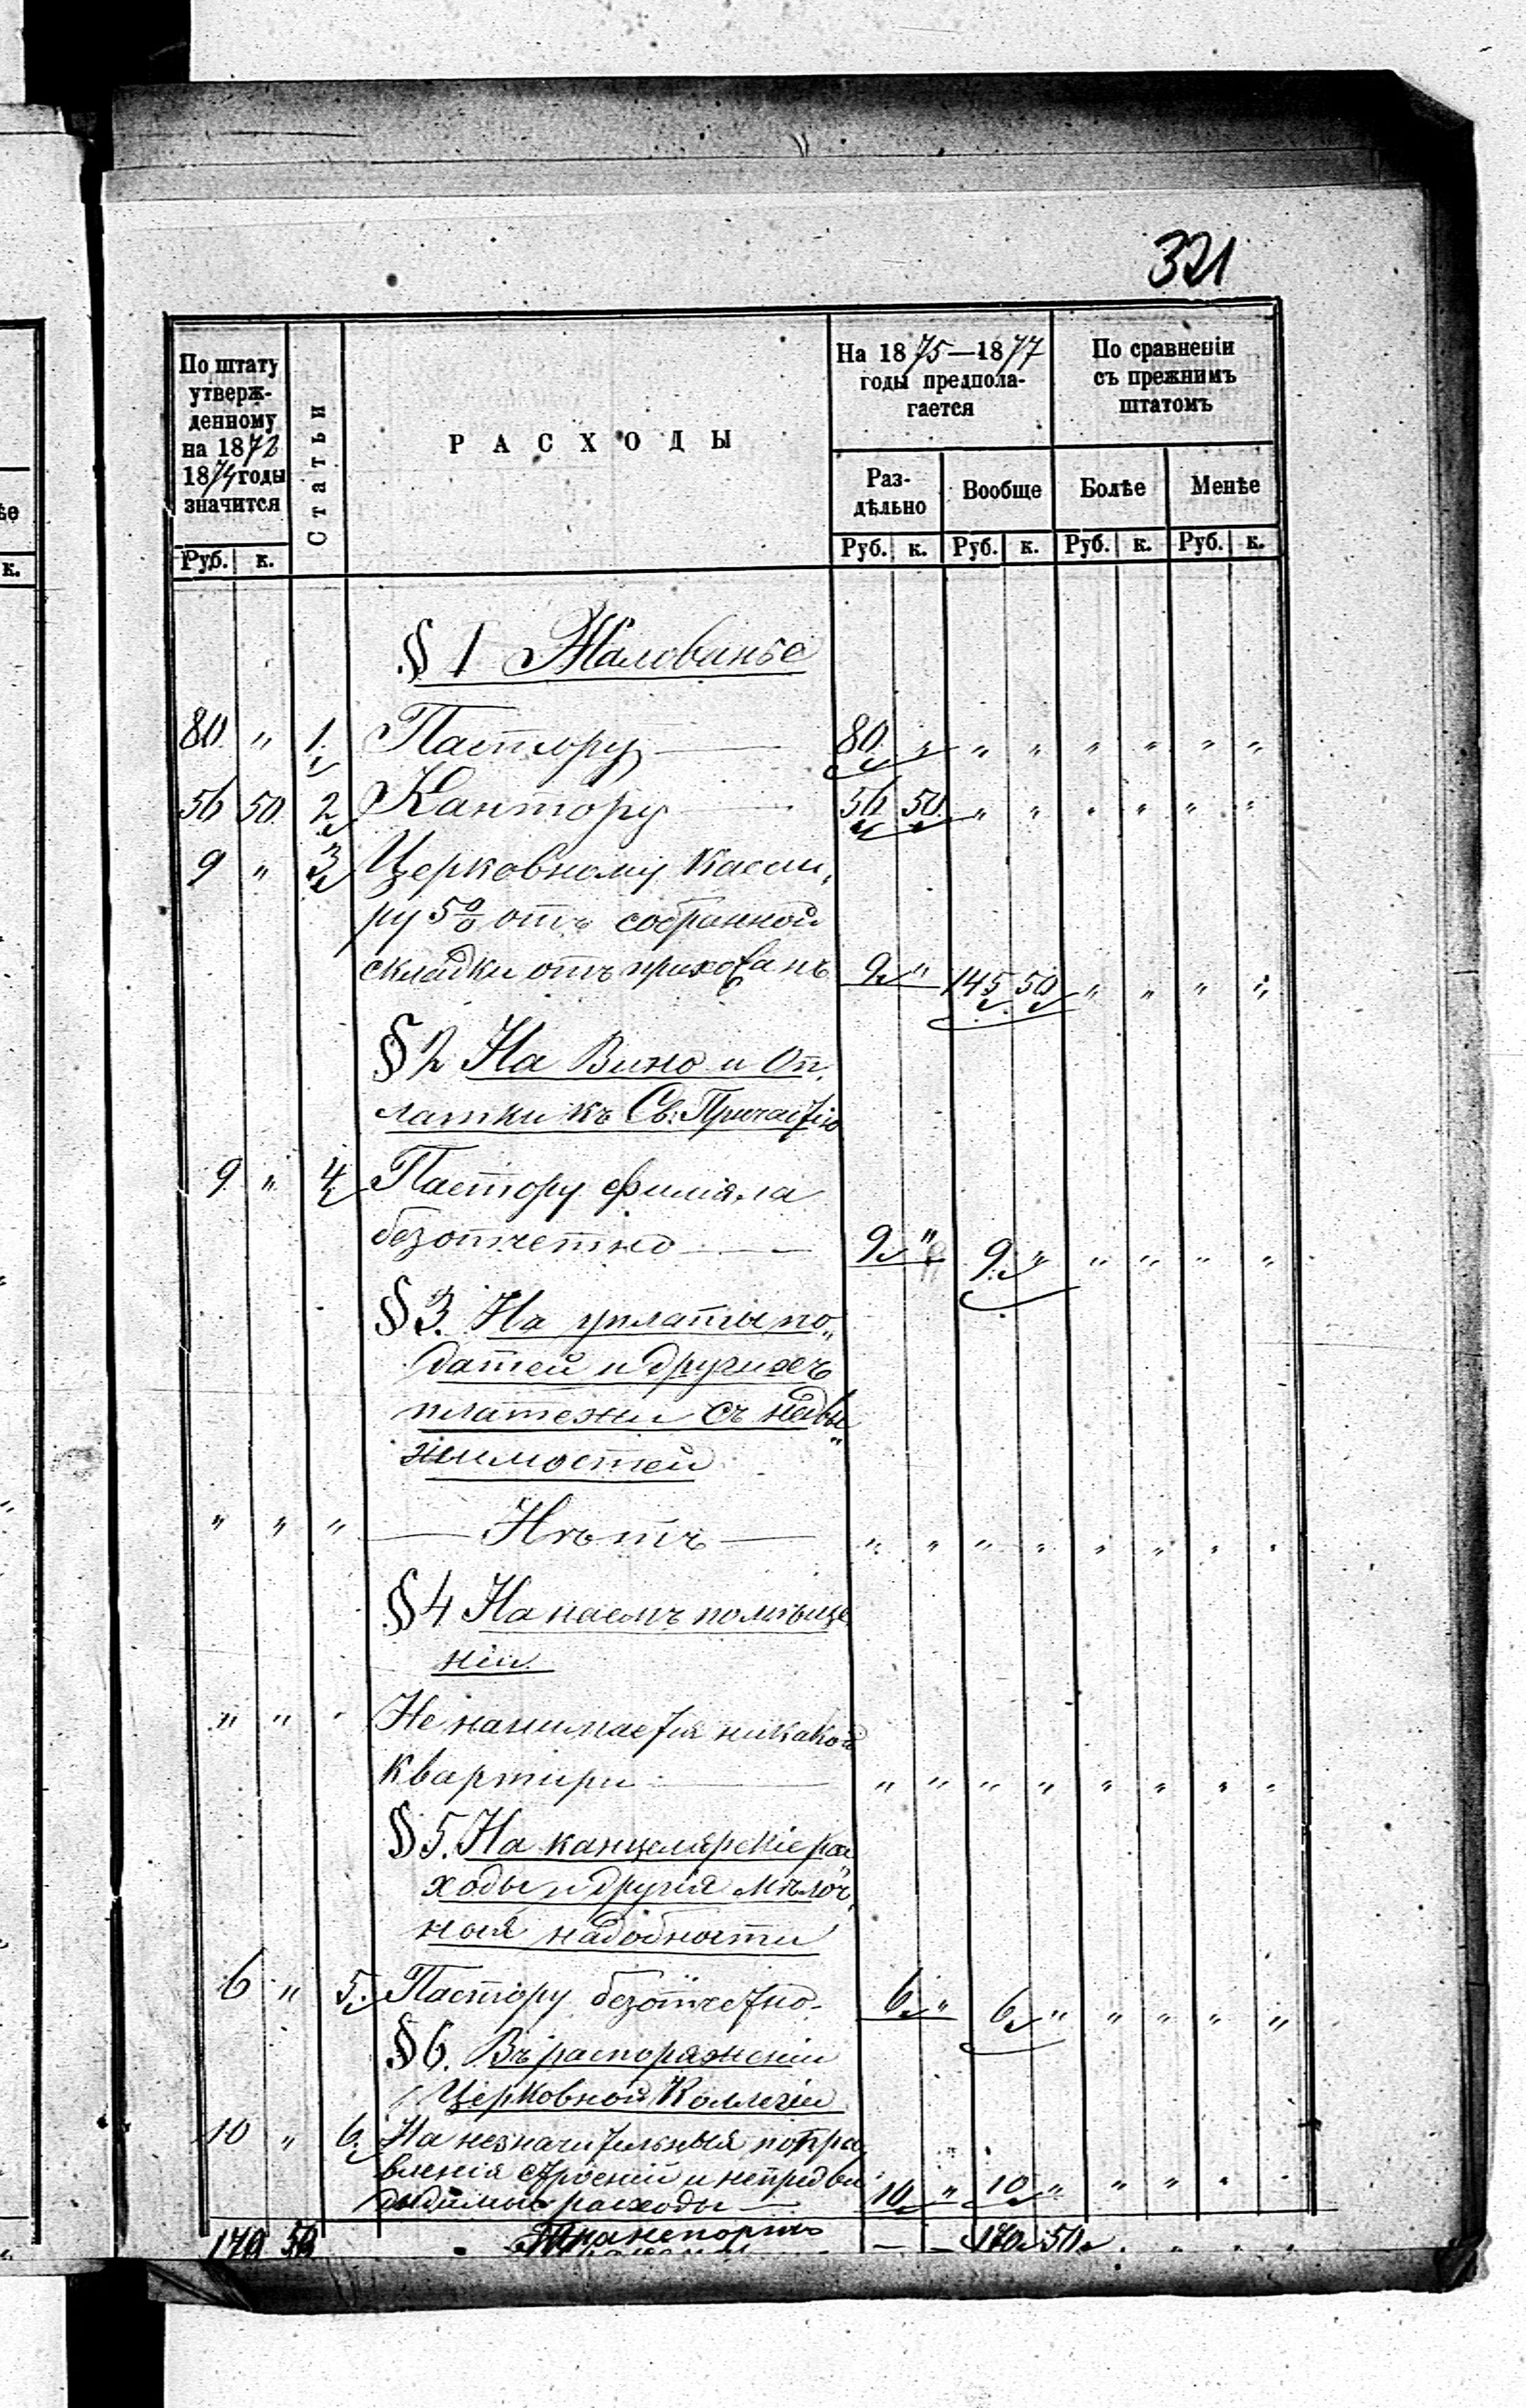 321
По штату
утверж-
денному
на 1872
1874 годы
значится
Статьи
РАСХОДЫ
На 1875—1877
годы предпола-
гается
По сравненіи
съ прежнимъ
штатомъ
Раз-
дѣльно
Вообще
Болѣе
Менѣе
Руб. к.
Руб. к. Руб. к. Руб. к. Руб. к.
ѣе
к.
§ 1 Жалованье
80. " 1. Пастору — 80. " " " " " " "
56 50. 2. Кантору — 56 50. " " " " " "
9 " 3. Церковному Касси,
ру 5% отъ собранной
складки отъ прихожанъ 9 " 145 50 " " " "
§ 2 На Вино и Оп,
латки къ Св. Причастію
9. " 4. Пастору филіяла
безотчетно — 9 " 9. " " " " "
§ 3. На уплаты по„
датей и другихъ
платежи съ недви„
жимостей
" " " — Нѣтъ — " " " " " " " "
§ 4 На наемъ помѣще
ніи.
" " " Не нанимается никакой
квартири — " " " " " " " "
§ 5. На канцелярскіе рас
ходы и другія мѣлоч,
ныя надобности
6 " 5. Пастору безотчетно - 6 " 6 " " " " "
§ 6. Въ распоряженіи
Церковной Коллегіи
10 " 6. На незначительныя попра,
вленія строеній и непредви
димые расходы — 10 " 10 " " " " "
170 50 Транспортъ — — 170 50